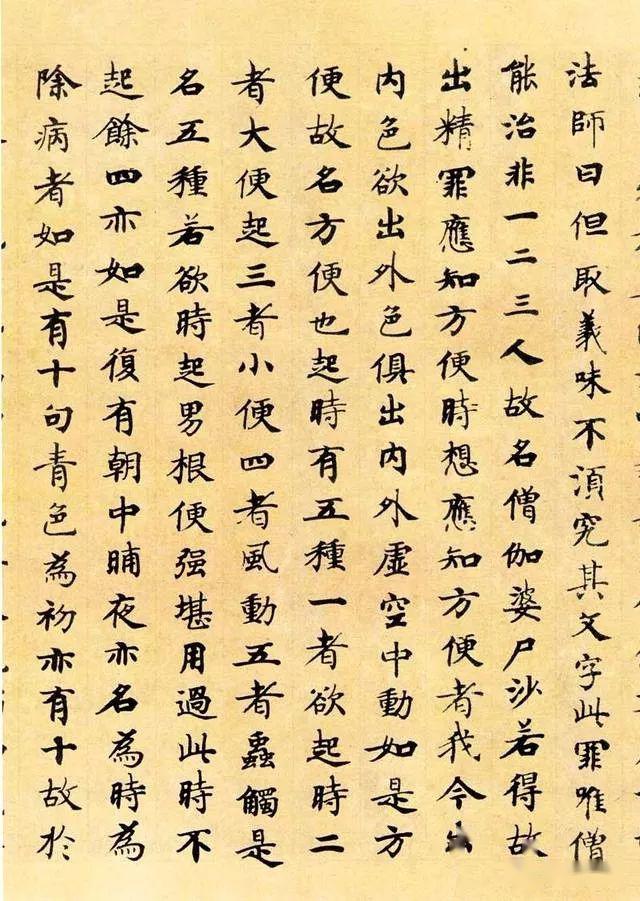 法師曰但取義味不湏究其文字此罪唯僧
能治非一二三人故名僧伽婆尸沙若得故
出精罪應知方便時想應知方便者我今出
内色欲出外色俱出内外虛空中動如是方
便故名方便也起時有五種一者欲起時二
者大便起三者小便四者風動五者蟲觸是
名五種若欲時起男根便强堪用過此時不
起餘四亦如是復有朝中晡夜亦名為時為
除病者如是有十句青色為初亦有十故於